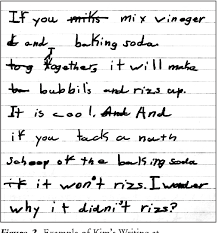 If you miks mix vineger
& and baking soda
tog together, it will make
ba bubbils and rizs up.
It is cool. And And
if you tack a nuth
schoop of the baking soda
if it won't rizs. I wonder
why it didni't rizs?
Figure 2. Example of Kim's Writing at